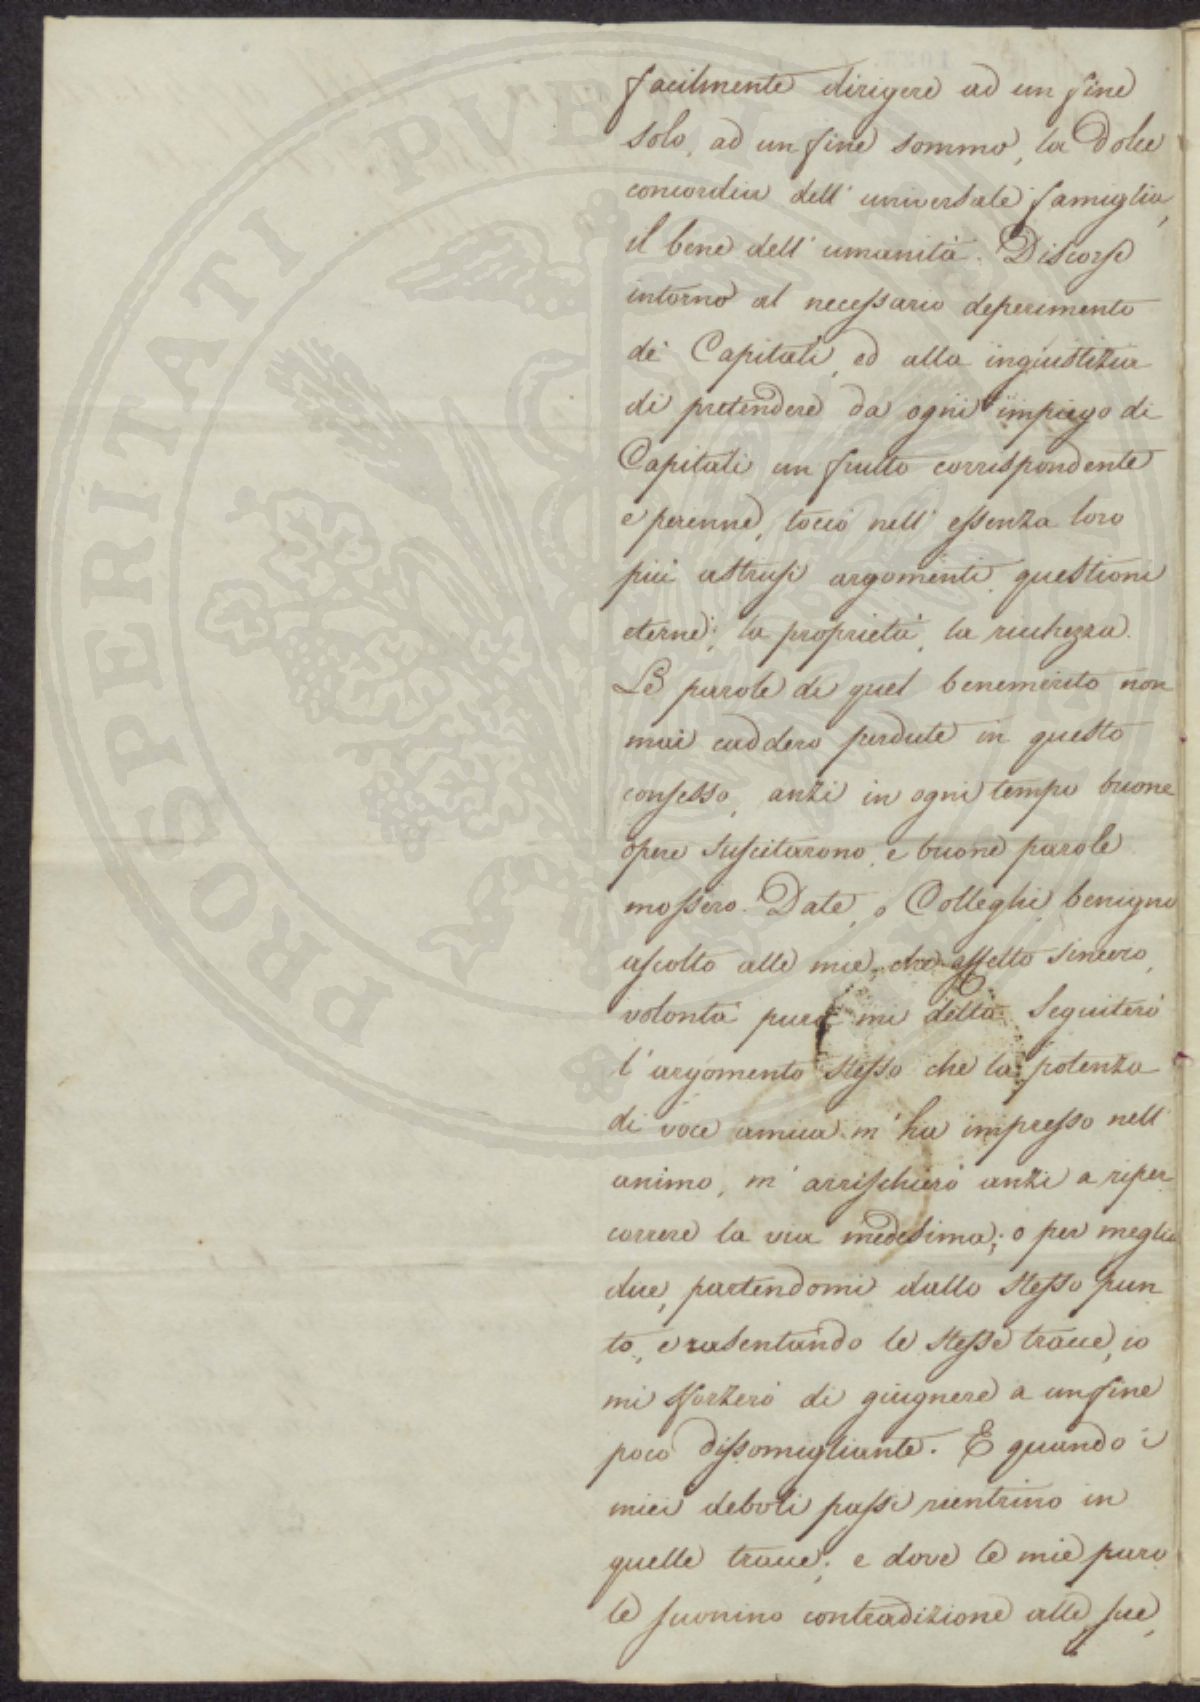 facilmente dirigere ad un fine
solo, ad un fine sommo, la dolce
concordia dell' universale famiglia,
il bene dell' umanità. Discorse
intorno al necessario deperimento
de' Capitali, ed alla ingiustizia
di pretendere da ogni impiego di
Capitali un frutto corrispondente
e perenne, toccò nell' essenza loro
più astrusi argomenti, questioni
eterne; la proprietà, la ricchezza.
Le parole di quel benemerito non
mai caddero perdute in questo
consesso, anzi in ogni tempo buone
opere suscitarono, e buone parole
mossero. Date, o Colleghi, benigno
ascolto alle mie, che affetto sincero,
volontà pura mi detta. Seguiterò
l' argomento stesso che la potenza
di voce amica m' ha impresso nell'
animo, m' arrischierò anzi a riper
correre la via medesima; o per meglio
dire, partendomi dallo stesso pun
to, e rasentando le stesse tracce, io
mi sforzerò di giugnere a un fine
poco dissomigliante. E quando i
miei deboli passi rientrino in
quelle tracce; e dove le mie paro
le suonino contradizione alle sue,
PROSPERITATI PVBL